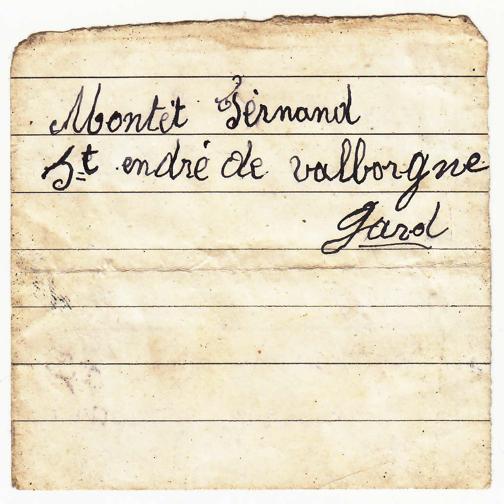 Montet Fernand
St endré de valborgne
Gard